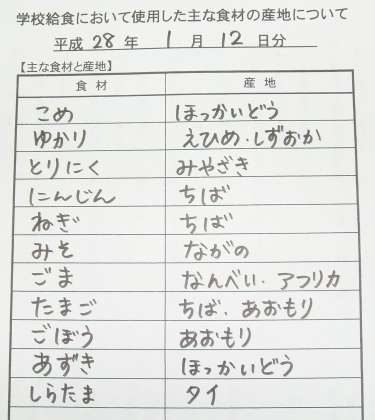 学校給食において使用した主な食材の産地について
平成 28 年 1 月 12 日分
【主な食材と産地】
食材 産地
こめ ほっかいどう
ゆかり えひめ・しずおか
とりにく みやざき
にんじん ちば
ねぎ ちば
みそ ながの
ごま なんべい、アフリカ
たまご ちば、あおもり
ごぼう あおもり
あずき ほっかいどう
しらたま タイ